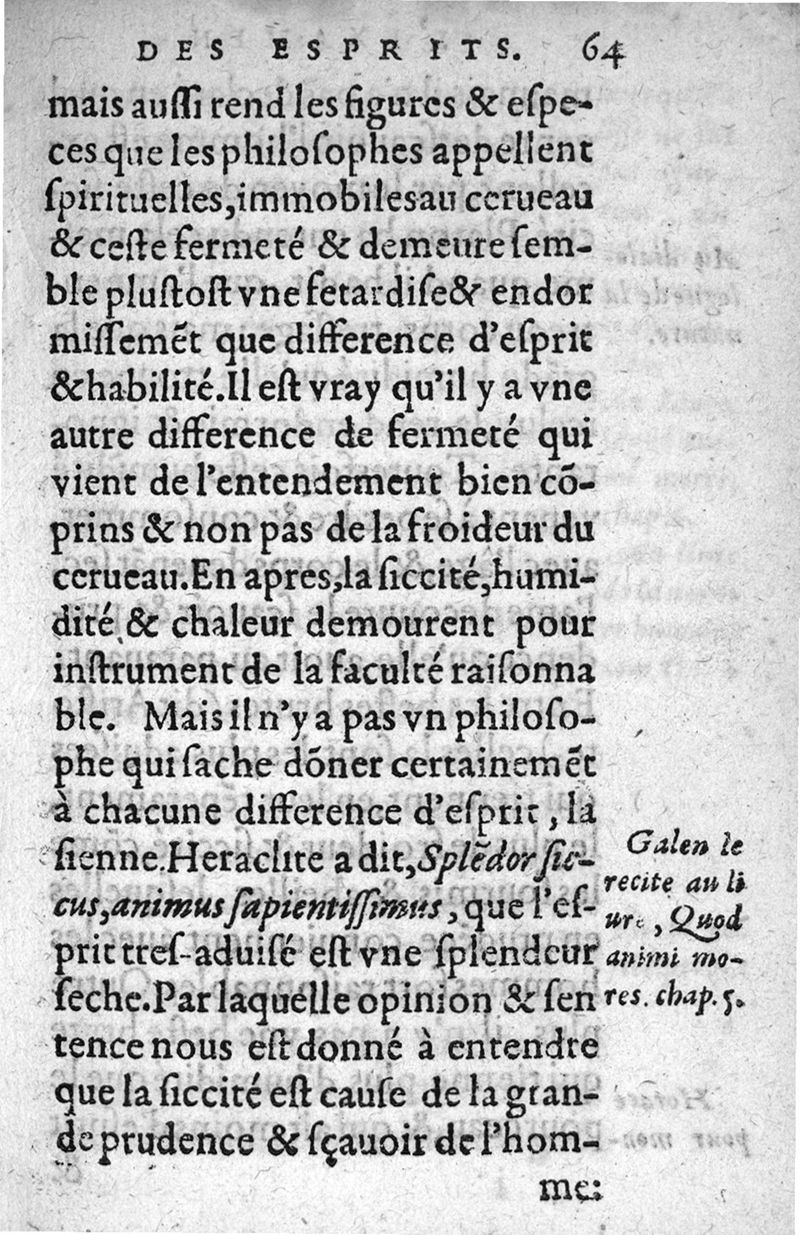 DES ESPRITS. 64
mais auſſi rend les figures & eſpe-
ces que les philoſophes appellent
ſpirituelles,immobiles au cerueau
& ceſte fermeté & demeure ſem-
ble pluſtoſt vne fetardiſe& endor
miſſemẽt que difference d'eſprit
&habilité.Il eſt vray qu'il y a vne
autre difference de fermeté qui
vient de l'entendement bien cõ-
prins & non pas de la froideur du
cerueau.En apres,la ſiccité,humi-
dité & chaleur demourent pour
inſtrument de la faculté raiſonna
ble. Mais il n'y a pas vn philoſo-
phe qui ſache dõner certainemẽt
à chacune difference d'eſprit, la
ſienne.Heraclite a dit,Splẽdor ſic-
cus,animus ſapientiſſimus, que l'eſ-
prit treſ-aduiſé eſt vne ſplendeur
ſeche.Par laquelle opinion & ſen
tence nous eſt donné à entendre
que la ſiccité eſt cauſe de la gran-
de prudence & ſçauoir de l'hom-
me:
Galen le
recite au li
ure, Quod
animi mo-
res. chap. 5.